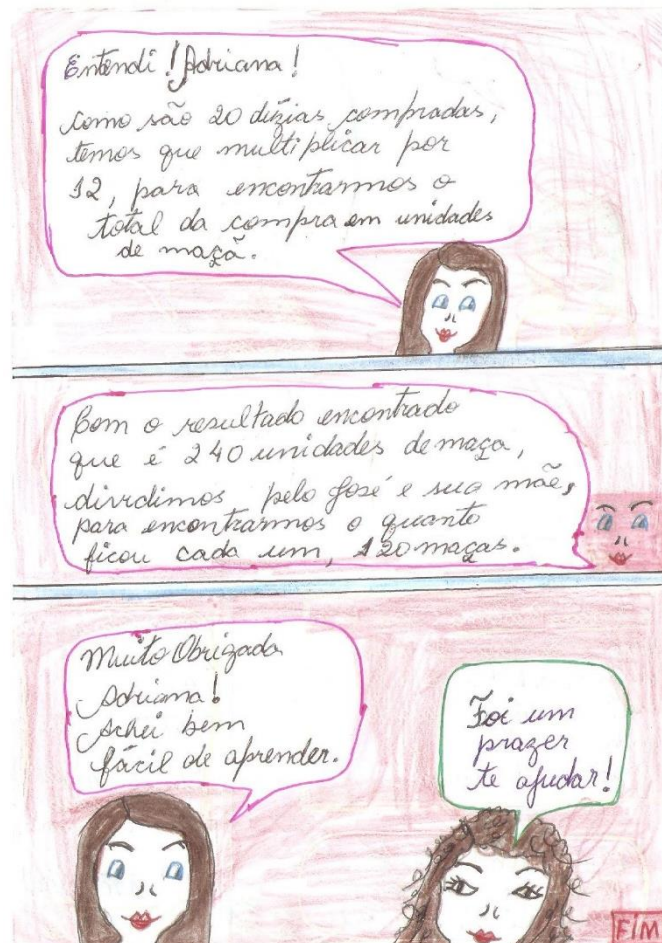 Entendi! Adriana!
como são 20 dúzias compradas,
temos que multiplicar por
12, para encontrarmos o
total da compra em unidades
de maçã.
Com o resultado encontrado
que é 240 unidades de maça,
dividimos pelo José e sua mãe,
para encontrarmos o quanto
ficou cada um, 120 maças.
Muito Obrigada
Adriana!
Achei bem
fácil de aprender.
Foi um
prazer
te ajudar!
FIM